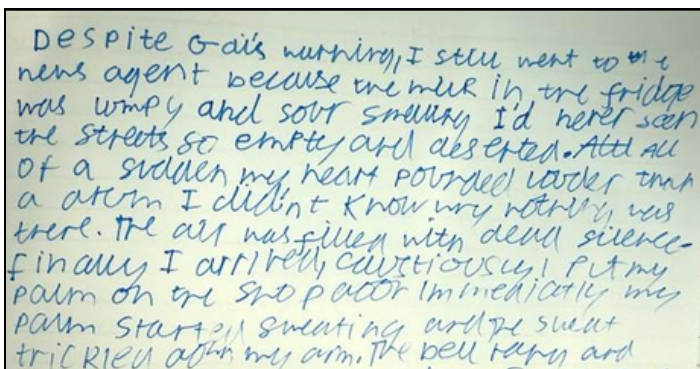 Despite Gail's warning, I still went to the
news agent because the milk in the fridge
was lumpy and sour smelling I'd never seen
the streets so empty and deserted. All
of a sudden my heart pounded louder than
a drum I didn't know why nothing was
there. The air was filled with dead silence.
Finally I arrived, caustiously I put my
palm on the shop door immediatly my
palm started sweating and the sweat
trickled down my arm. The bell rang and